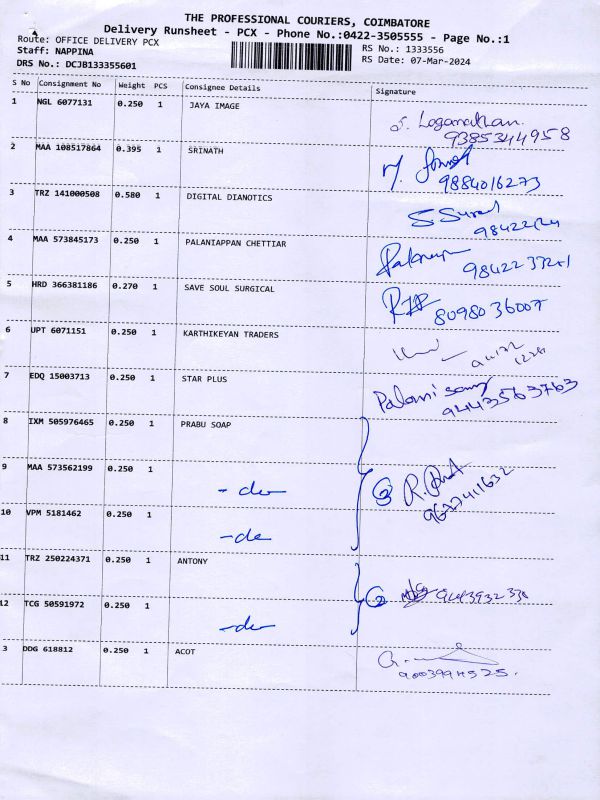 THE PROFESSIONAL COURIERS, COIMBATORE
Delivery Runsheet - PCX - Phone No.:0422-3505555 - Page No.:1
Route: OFFICE DELIVERY PCX
RS No.: 1333556
Staff: NAPPINA
RS Date: 07-Mar-2024
DRS No.: DCJB133355601
S No Consignment No Weight PCS Consignee Details Signature
1 NGL 6077131 0.250 1 JAYA IMAGE
Loganathan
9385344958
2 MAA 108517864 0.395 1 SRINATH
9884016273
3 TRZ 141000508 0.580 1 DIGITAL DIANOTICS
4 MAA 573845173 0.250 1 PALANIAPPAN CHETTIAR
5 HRD 366381186 0.270 1 SAVE SOUL SURGICAL
8098036007
6 UPT 6071151 0.250 1 KARTHIKEYAN TRADERS
7 EDQ 15003713 0.250 1 STAR PLUS
Palanisamy
9443563763
8 IXM 505976465 0.250 1 PRABU SOAP
9 MAA 573562199 0.250 1 - do
10 VPM 5181462 0.250 1 - do
11 TRZ 250224371 0.250 1 ANTONY
12 TCG 50591972 0.250 1 - do
3 DDG 618812 0.250 1 ACOT